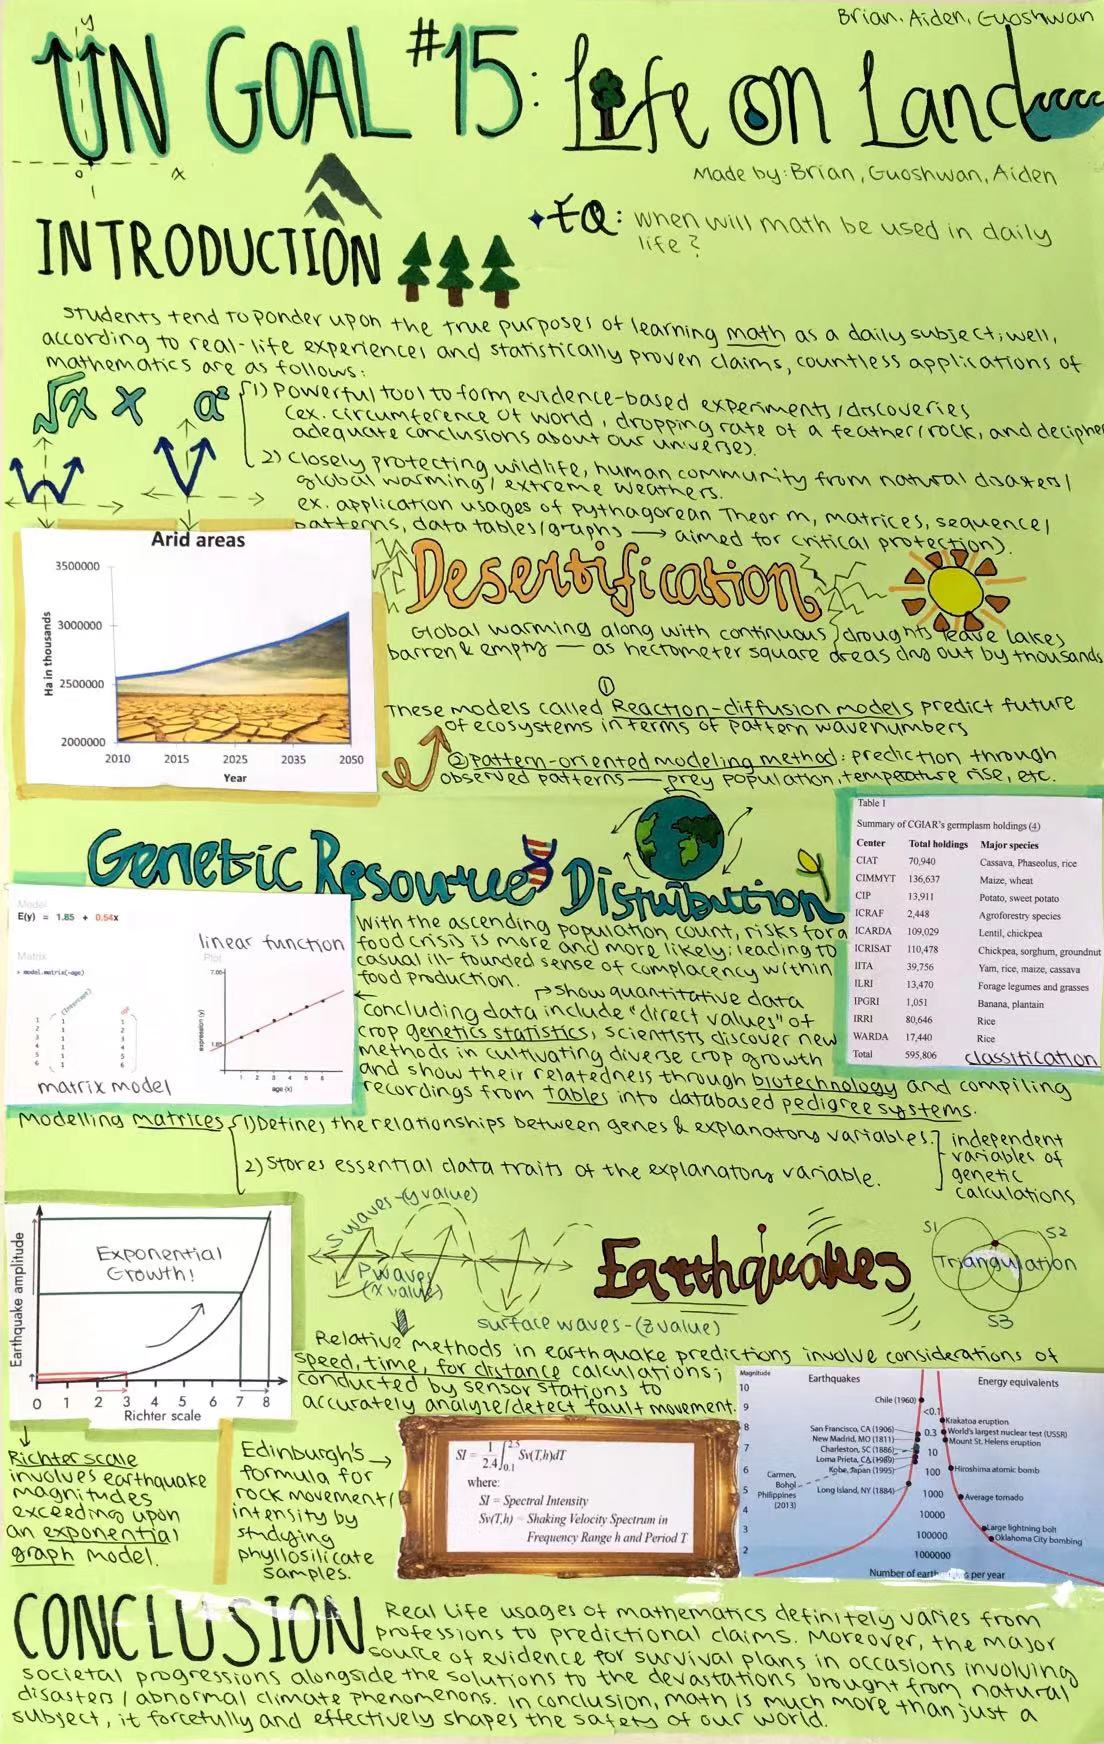 Brian, Aiden, Guoshwan
UN GOAL #15: Life on Land
y
0
x
Made by: Brian, Guoshwan, Aiden
EQ: when will math be used in daily
life?
INTRODUCTION
Students tend to ponder upon the true purposes of learning math as a daily subject; well,
according to real-life experiences and statistically proven claims, countless applications of
mathematics are as follows:
√x x a²
1) Powerful tool to form evidence-based experiments/discoveries
(ex. circumference of world, dropping rate of a feather/rock, and decipher
adequate conclusions about our universe).
2) Closely protecting wildlife, human community from natural disasters/
global warming/extreme weathers.
ex. application usages of Pythagorean Theorm, matrices, sequence/
patterns, data tables/graphs → aimed for critical protection).
Arid areas
3500000
3000000
2500000
2000000
Ha in thousands
2010 2015 2025 2035 2050
Year
Desertification
Global warming along with continuous droughts leave lakes
barren & empty — as hectometer square areas dry out by thousands
①
These models called Reaction-diffusion models predict future
of ecosystems in terms of pattern wavenumbers
②Pattern-oriented modeling method: prediction through
observed patterns — prey population, temperature rise, etc.
Genetic Resource Distribution
Table 1
Summary of CGIAR's germplasm holdings (4)
Center Total holdings Major species
CIAT 70,940 Cassava, Phaseolus, rice
CIMMYT 136,637 Maize, wheat
CIP 13,911 Potato, sweet potato
ICRAF 2,448 Agroforestry species
ICARDA 109,029 Lentil, chickpea
ICRISAT 110,478 Chickpea, sorghum, groundnut
IITA 39,756 Yam, rice, maize, cassava
ILRI 13,470 Forage legumes and grasses
IPGRI 1,051 Banana, plantain
IRRI 80,646 Rice
WARDA 17,440 Rice
Total 595,806
classification
Model
E(y) = 1.85 + 0.54x
Matrix
> model.matrix(~age)
(Intercept)
1 1 1
2 1 2
3 1 3
4 1 4
5 1 5
6 1 6
matrix model
linear function
Plot
7.00
1.85
expression (y)
1 2 3 4 5 6
age (x)
With the ascending population count, risks for a
food crisis is more and more likely; leading to
casual ill-founded sense of complacency within
food production.
show quantitative data
Concluding data include "direct values" of
crop genetics statistics, scientists discover new
methods in cultivating diverse crop growth
and show their relatedness through biotechnology and compiling
recordings from tables into databased pedigree systems.
Modelling matrices
1) Defines the relationships between genes & explanatory variables.
2) Stores essential data traits of the explanatory variable.
independent
variables of
genetic
calculations
Exponential
Growth!
Earthquake amplitude
0 1 2 3 4 5 6 7 8
Richter scale
S waves-(y value)
P waves
(x value)
surface waves-(z value)
Earthquakes
S1
S2
Triangulation
S3
Relative methods in earthquake predictions involve considerations of
speed, time, for distance calculations;
conducted by sensor stations to
accurately analyze/detect fault movement.
Richter scale
involves earthquake
magnitudes
exceeding upon
an exponential
graph model.
Edinburgh's
formula for
rock movement/
intensity by
studying
phyllosilicate
samples.
SI = 1/2.4 ∫0.1 2.5 Sv(T,h)dT
where:
SI = Spectral Intensity
Sv(T,h) = Shaking Velocity Spectrum in
Frequency Range h and Period T
Magnitude
Earthquakes
Energy equivalents
10
9
8
7
6
5
4
3
2
Chile (1960)
San Francisco, CA (1906)
New Madrid, MO (1811)
Charleston, SC (1886)
Loma Prieta, CA (1989)
Kobe, Japan (1995)
Carmen,
Bohol
Philippines
(2013)
Long Island, NY (1884)
<0.1
0.3
10
100
1000
10000
100000
1000000
Krakatoa eruption
World's largest nuclear test (USSR)
Mount St. Helens eruption
Hiroshima atomic bomb
Average tornado
Large lightning bolt
Oklahoma City bombing
Number of earthquakes per year
CONCLUSION
Real life usages of mathematics definitely varies from
professions to predictional claims. Moreover, the major
source of evidence for survival plans in occasions involving
societal progressions alongside the solutions to the devastations brought from natural
disasters/abnormal climate phenomenons. In conclusion, math is much more than just a
subject, it forcefully and effectively shapes the safety of our world.